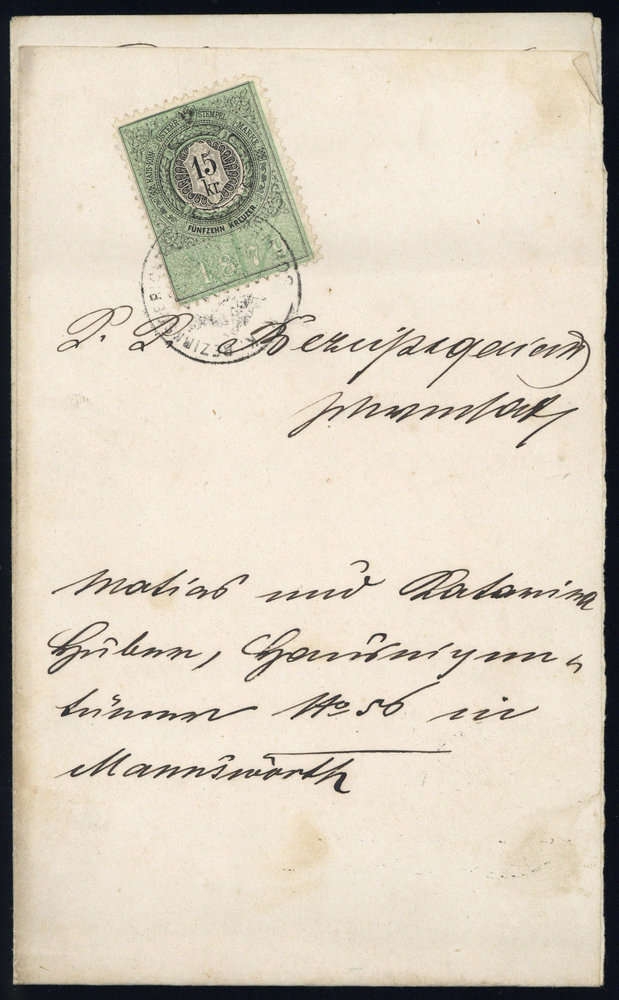 15
kr.
FÜNFZEHN KREUZER
1877
K. K. Bezirksgericht
Schwechat
Matias und Katarina
Huber, Hauseigen-
tümer No 56 in
Mannswörth